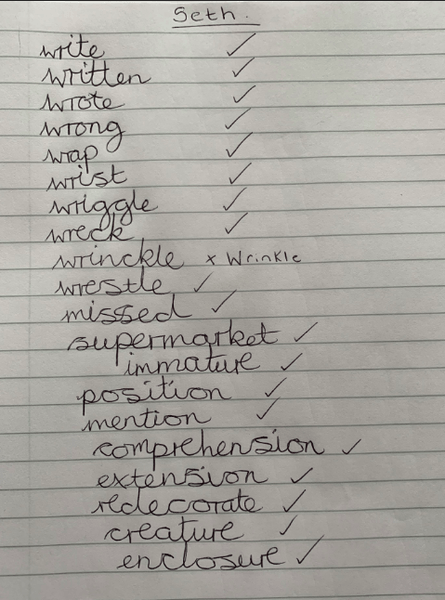 Seth.
write ✓
written ✓
wrote ✓
wrong ✓
wrap ✓
wrist ✓
wriggle ✓
wreck ✓
wrinckle x Wrinkle
wrestle ✓
missed ✓
supermarket ✓
immature ✓
position ✓
mention ✓
comprehension ✓
extension ✓
redecorate ✓
creature ✓
enclosure ✓